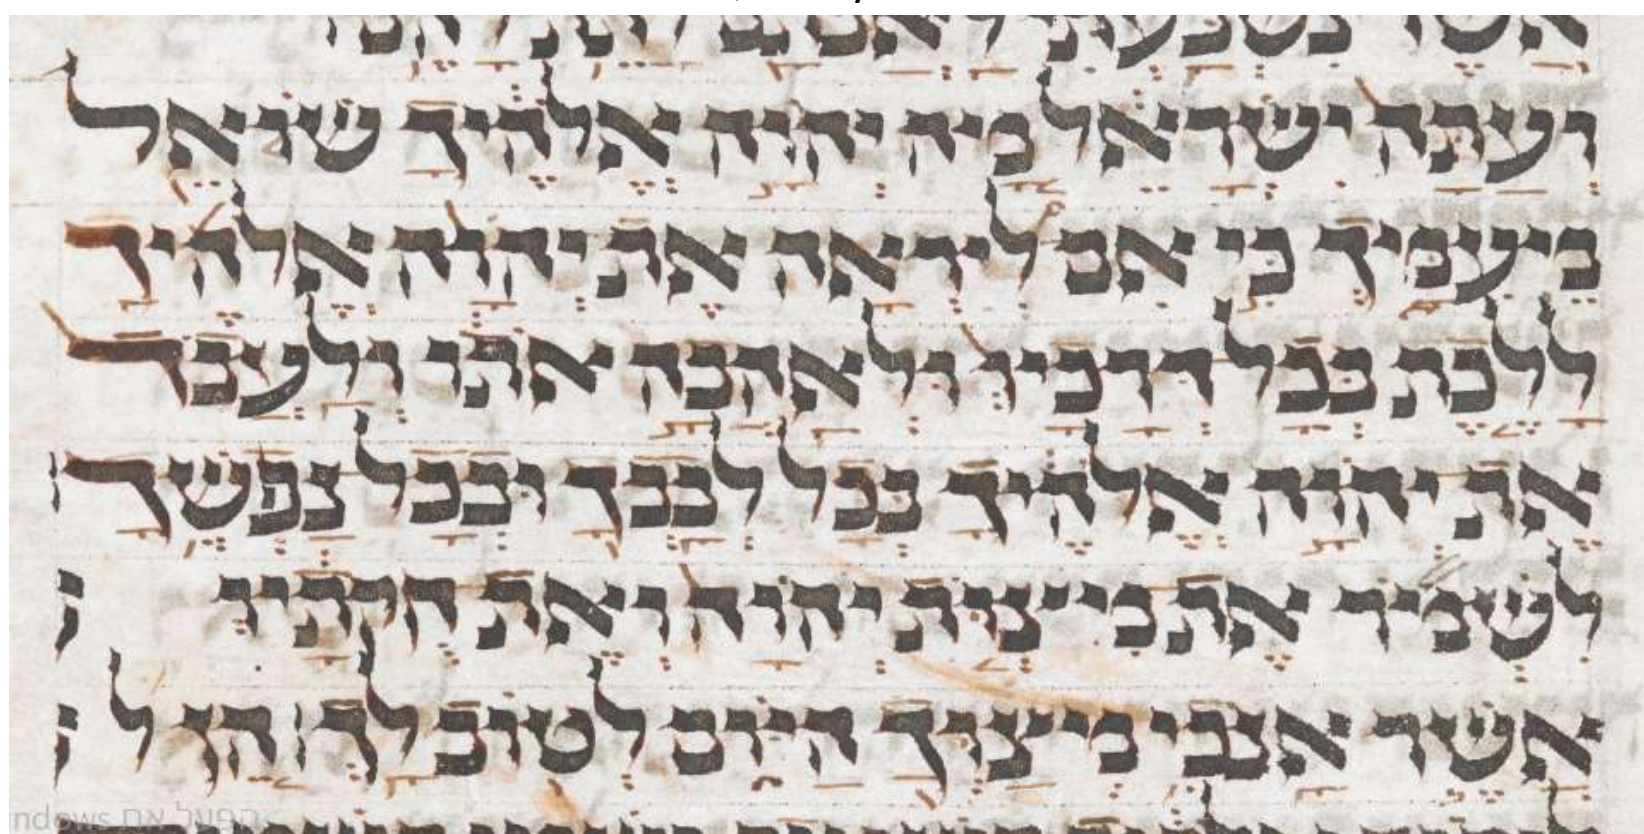 אשר נשבעתי לאבתם לתת להם
ועתה ישראל מה יהוה אלהיך שואל
מעמך כי אם ליראה את יהוה אלהיך
ללכת בכל דרכיו ולאהבה אתו ולעבד
את יהוה אלהיך בכל לבבך ובכל נפשך
לשמר את מצות יהוה ואת חקתיו
אשר אנכי מצוך היום לטוב לך הן ל
הפעל את ndows